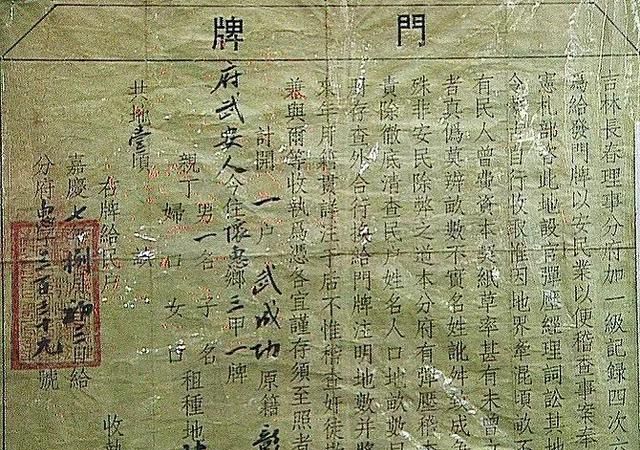 門牌
吉林長春理事分府加一級記錄四次六
爲給發門牌以安民業以便稽查事案奉
憲札部咨此地設官彈壓經理詞訟封地
令自行收取惟因地界牽混頃畝不
有民人曾費資本契紙草率甚有未曾立
者真僞莫辨畝數不實名姓訛舛或成
殊非安民除弊之道本分府有彈壓稽查
責除徹底清查民戶姓名人口地畝數目
冊存查外合行換給門牌注明地數并將
來年所籍貫詳注于后不惟稽查奸徒
兼與爾等收執爲憑各宜謹存須至照者
計開 一户 武成功 原籍彰
府武安人今住懷惠鄉三甲一牌
親丁 男一名 子 名 租種地
婦 口 女 口
共地壹頃
右牌給民户 收執
嘉慶七 捌月初三日給
分府 三百三十九號